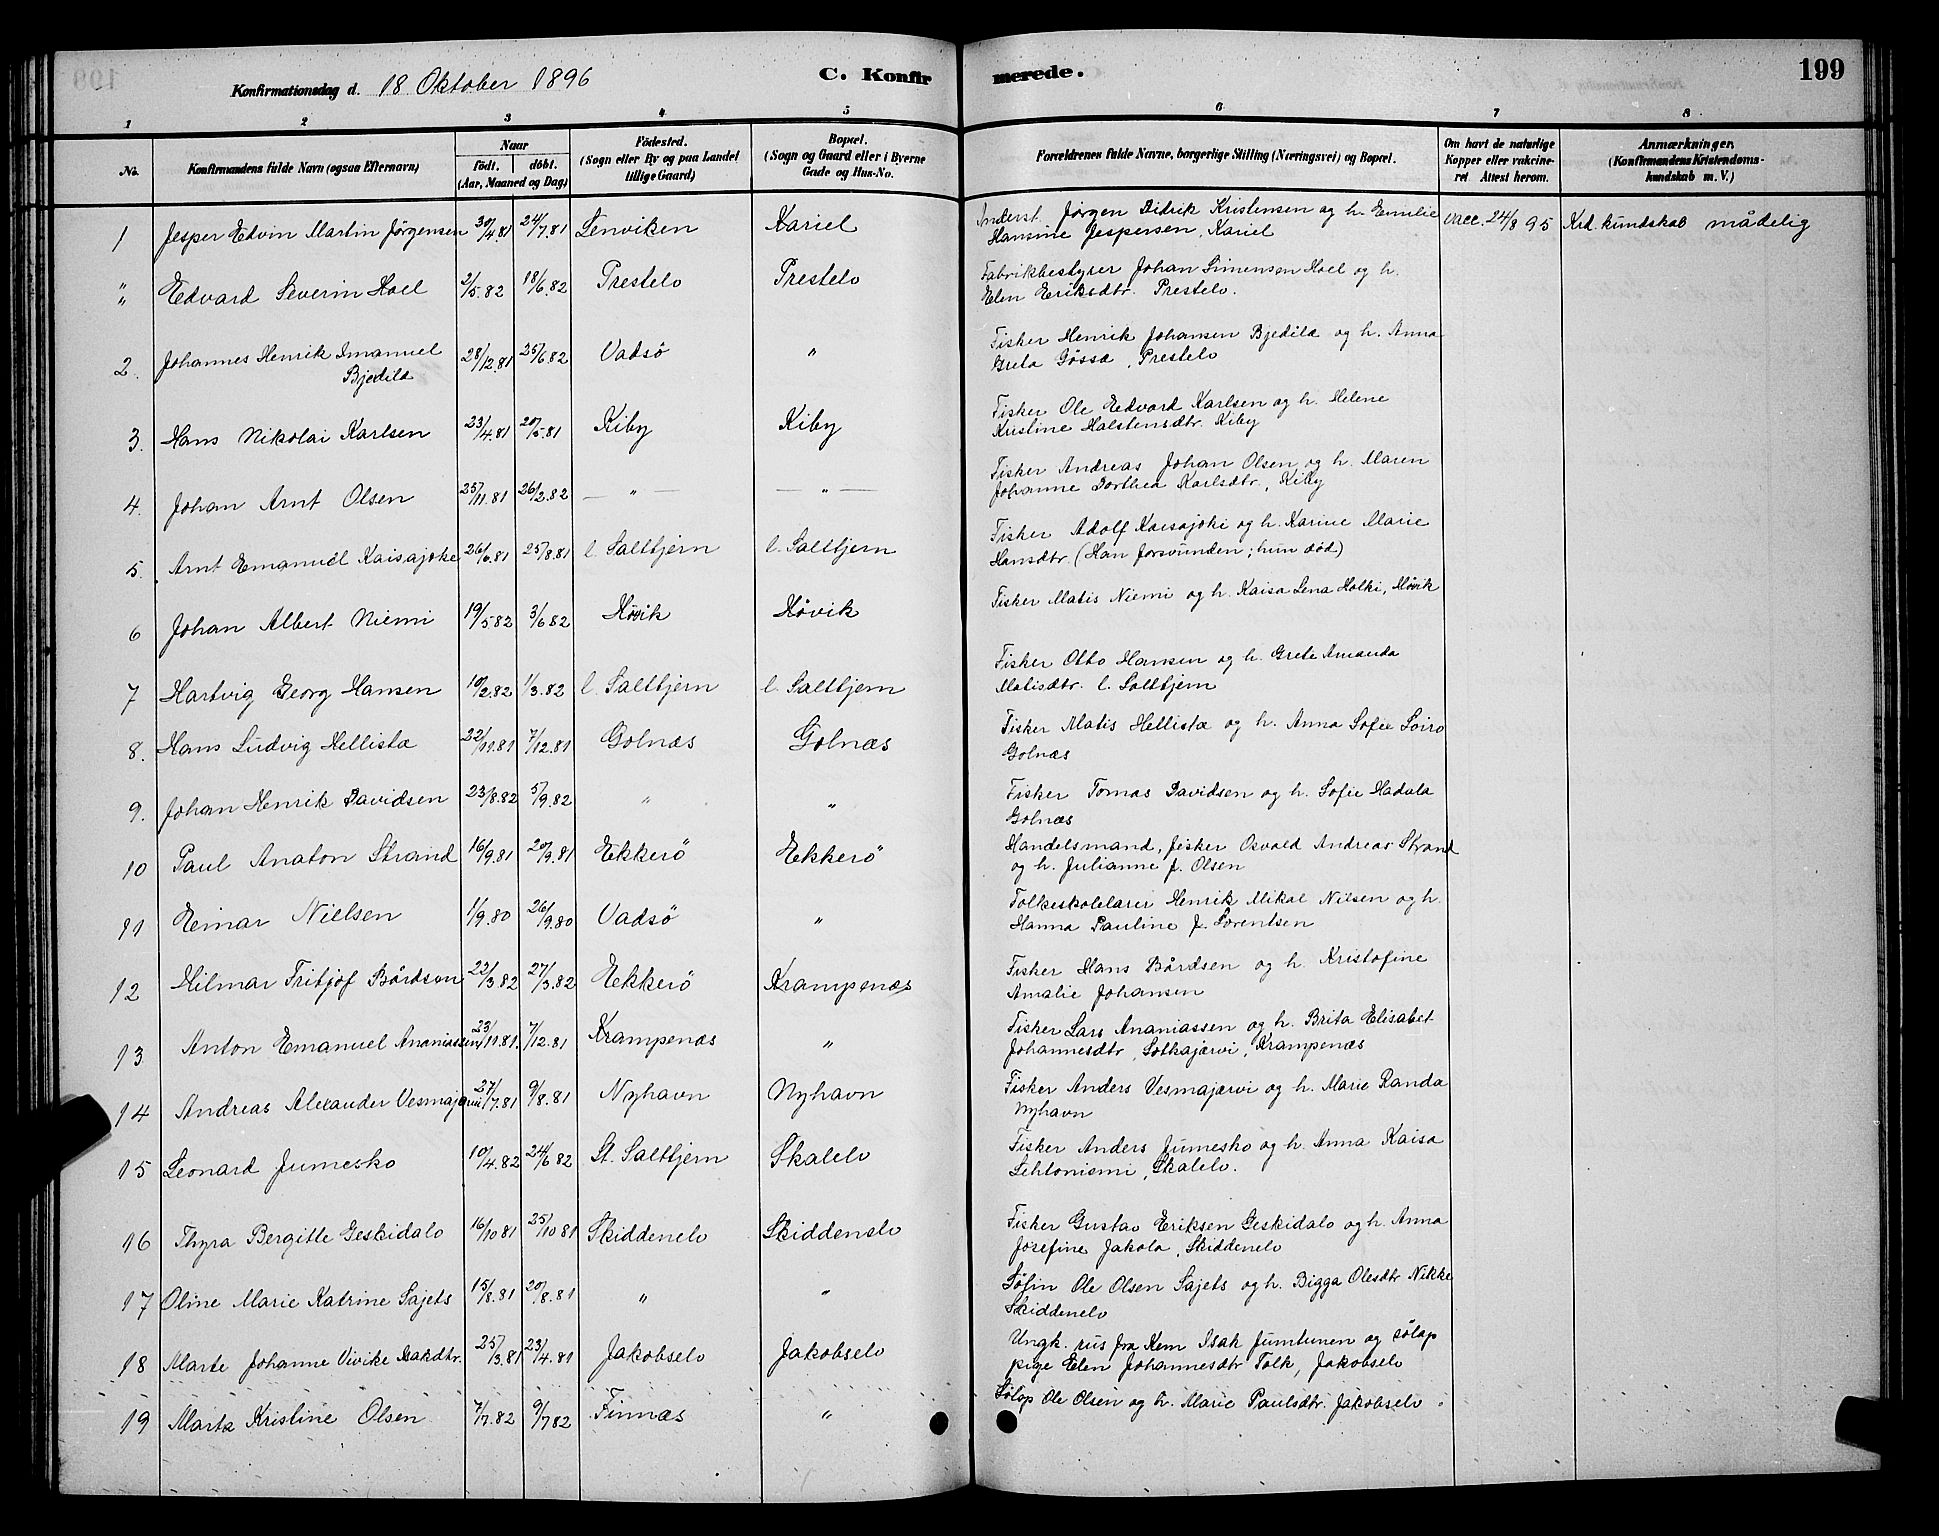 Konfirmationsdag d. 18 Oktober 1896 C. Konfirmerede. 199
1 2 3 4 5 6 7 8
No. Konfirmandens fulde Navn (ogsaa Efternavn) Naar födt. döbt. (Aar, Maaned og Dag) Födested. (Sogn eller By og paa Landet tillige Gaard) Bopæl. (Sogn og Gaard eller i Byerne Gade og Hus-No. Forældrenes fulde Navne, borgerlige Stilling (Næringsvei) og Bopæl. Om havt de naturlige Kopper eller vakcineret Attest herom. Anmærkninger. (Konfirmandens Kristendomskundskab m. V.)
1 Jesper Edvin Martin Jørgensen 30/4.81 24/7.81 Lenviken Kariel Jørgen Didrik Kristensen og h. Emilie vacc. 24/8 95 Krd. kundskab mådelig
Hansine Jespersen, Kariel
" Edvard Severin Hoel 2/5.82 18/6.82 Prestelv Prestelv Fabrikbestyrer Johan Simensen Hoel og h.
Elen Eriksdtr. Prestelv.
2. Johannes Henrik Imanuel 28/12.81 25/6 82 Vadsö " Fisker Henrik Johansen Bjedilæ og h. Anna
Bjedilæ Greta Gössæ, Prestelv
3. Hans Nikolai Karlsen 23/4.81 20/5.81 Kiby Kiby Fisker Ole Edvard Karlsen og h. Helene
Kristine Halstensdtr. Kiby
4. Johan Arnt Olsen 25/11.81 26/2.82 — " — — " — Fisker Andreas Johan Olsen og h. Maren
Johanne Dorthea Karlsdtr., Kiby
5. Arnt Emanuel Kaisajoke 26/6.81 25/8.81 l. Saltbjern l. Saltbjern Fisker Adolf Kaisajoki og h. Karine Marie
Hansdtr. (Han forsvunden; hun död)
6 Johan Albert Niemi 19/5 82 3/6 82 Høvik Høvik Fisker Matis Niemi og h. Kaisa Lena Holki, Høvik
7 Hartvig Georg Hansen 10/2.82 1/3.82 l. Saltbjern l. Saltbjern Fisker Otto Hansen og h. Grete Amanda
Matisdtr. l. Saltbjern
8. Hans Ludvig Hellistæ 22/11.81 7/12.81 Golnæs Golnæs Fisker Matis Hellistæ og h. Anna Sofie Soiro
Golnæs
9. Johan Henrik Davidsen 23/8.82 5/9.82 " " Fisker Tomas Davidsen og h. Sofie Hadala
Golnæs
10 Paul Anaton Strand 16/9.81 20/9.81 Ekkerö Ekkerö Handelsmand, fisker Osvald Andreas Strand
og h. Julianne f. Olsen
11 Einar Nielsen 1/9.80 26/9.80 Vadsö " Folkeskolelærer Henrik Mikal Nilsen og h.
Hanna Pauline f. Lorentsen
12 Hilmar Fritjof Bårdsen 22/3 82 27/3.82 Ekkerö Krampenæs Fisker Hans Bårdsen og h. Kristofine
Amalie Johansen
13 Anton Emanuel Ananiassen 23/11.81. 7/12.81 Krampenæs " Fisker Lars Ananiassen og h. Brita Elisabet
Johannesdtr, Sotkajærvi, Krampenæs
14 Andreas Alexander Vesmajærvi 27/7.81 9/8.81 Nyhavn Nyhavn Fisker Anders Vesmajærvi og h. Marie Randa
Nyhavn
15 Leonard Jumesko 10/4.82 24/6 82 St. Saltbjern Skalelv Fisker Anders Jumesko og h. Anna Kaisa
Lehtoniemi, Skalelv.
16 Thyra Bergitte Geskidalo 16/10 81 25/10 81 Skiddenelv Skiddenelv Fisker Gustav Eriksen Geskidalo og h. Anna
Josefine Jakola, Skiddenelv
17 Oline Marie Katrine Sajets 15/8.81 20/8.81 " " Søfin Ole Olsen Sajets og h. Bigga Olesdtr Nikke
Skiddenelv
18 Marte Johanne Vivike Isakdtr. 25/3.81 23/4.81 Jakobselv Jakobselv Ungk. rus fra Kem Isak Jumtunen og sölap
pige Elen Johannesdtr Talk, Jakobselv
19 Marta Kristine Olsen 7/7.82 9/7 82 Finnæs " Sölap Ole Olsen og h. Marie Paulsdtr. Jakobselv